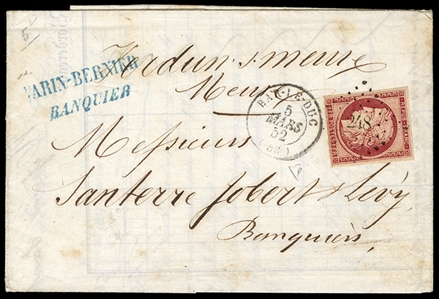 Verdun s. meuse
Meuse
VARIN-BERNIER
BANQUIER
BAR-LE-DUC
5
MARS
52
Messieurs
Santerre Jobert & Lévy
Banquiers